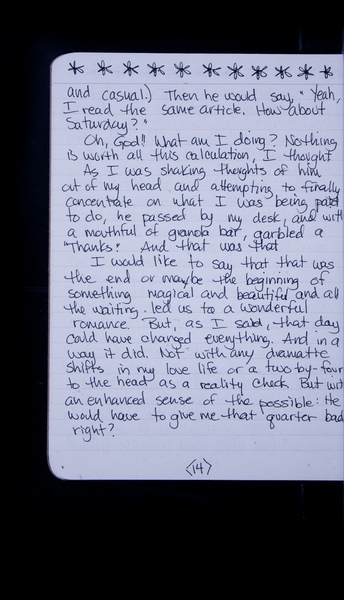 and casual.) Then he would say, "Yeah,
I read the same article. How about
Saturday?"
Oh, God!! What am I doing? Nothing
is worth all this calculation, I thought
As I was shaking thoughts of him
out of my head and attempting to finally
concentrate on what I was being paid
to do, he passed by my desk, and with
a mouthful of granola bar, garbled a
"Thanks." And that was that
I would like to say that that was
the end or maybe the beginning of
something magical and beautiful and all
the waiting led us to a wonderful
romance. But, as I said, that day
could have changed everything. And in a
way it did. Not with any dramatic
shifts in my love life or a two-by-four
to the head as a reality check. But with
an enhanced sense of the possible: He
would have to give me that quarter back
right?
<14>